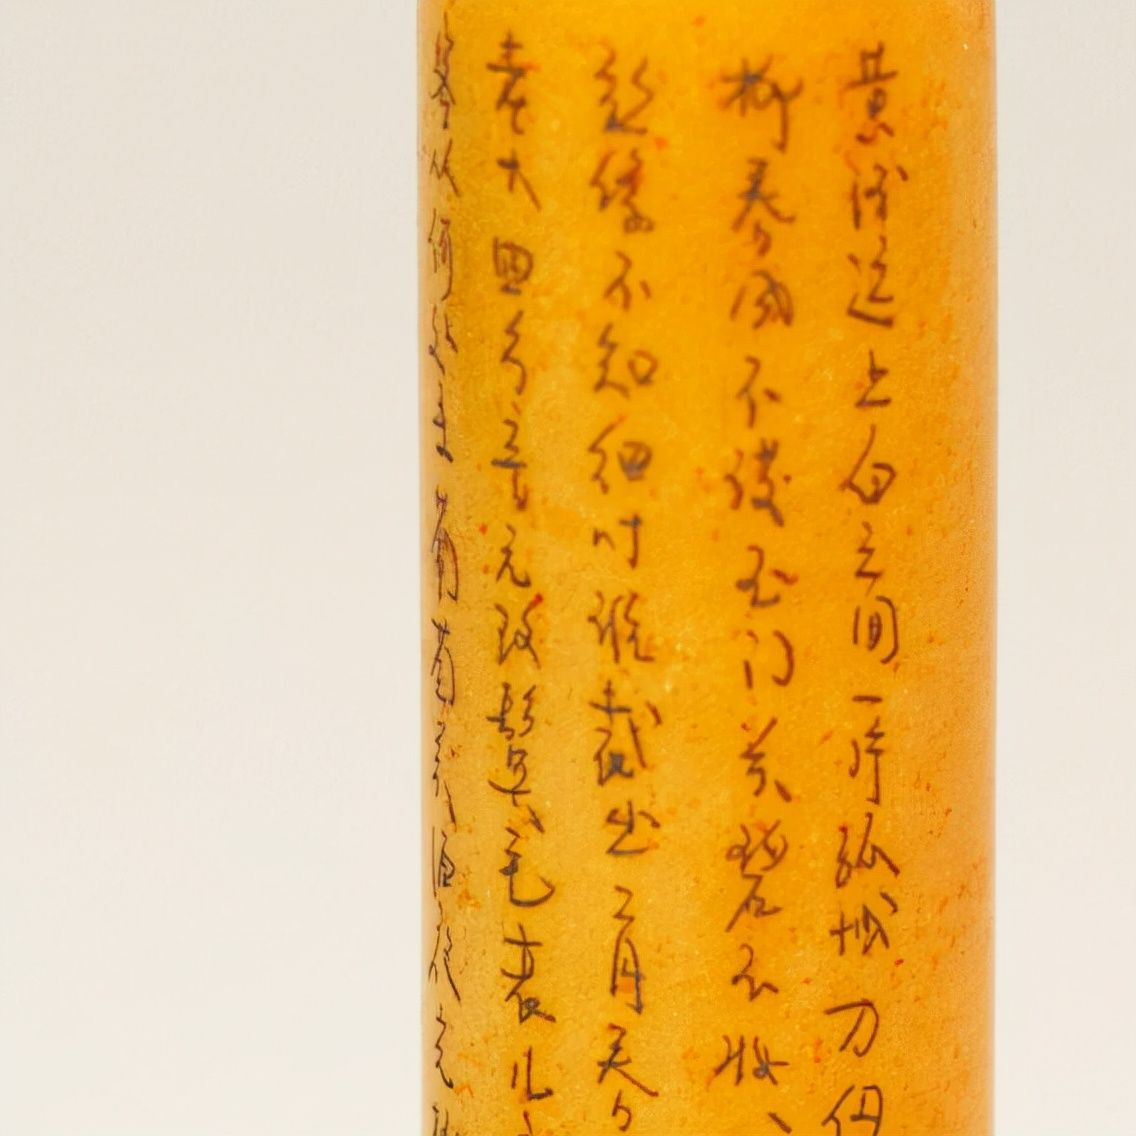 黄河远上白云间一片孤城万仞
柳春风不渡玉门关碧玉妆
丝绦不知细叶谁裁出二月春
老大回乡音无改鬓毛衰儿
客从何处来葡萄美酒夜光